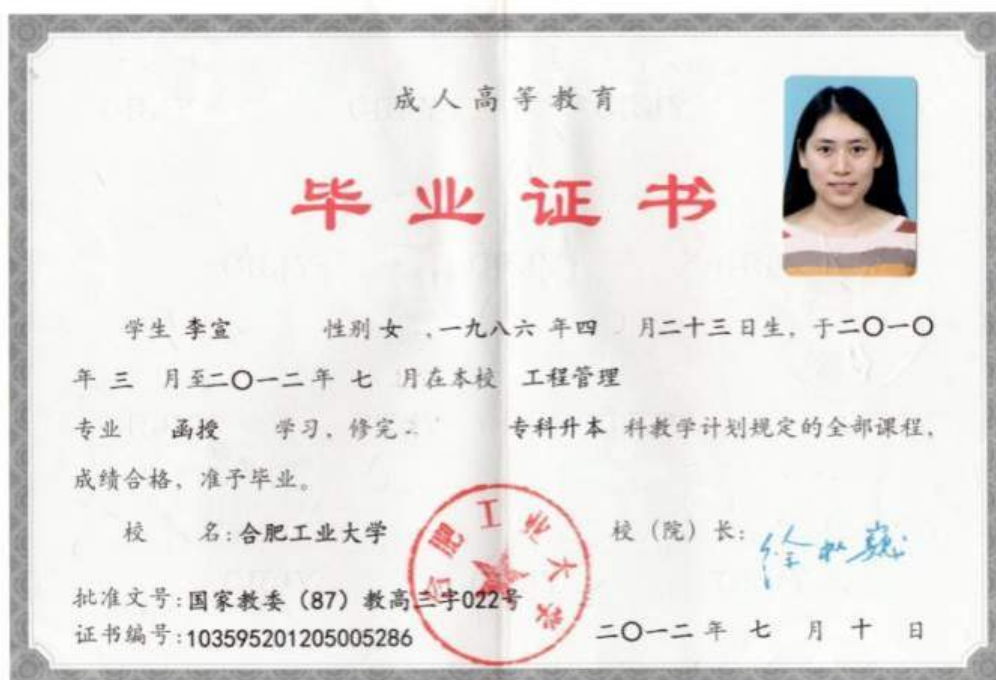 成人高等教育
毕业证书
学生 李宣 性别 女 ,一九八六 年四 月二十三日生，于二〇一〇
年 三 月至二〇一二年 七 月在本校 工程管理
专业 函授 学习，修完 专科升本 科教学计划规定的全部课程，
成绩合格，准予毕业。
校 名:合肥工业大学
校（院）长:
合肥工业大学
批准文号:国家教委（87）教高三字022号
证书编号:103595201205005286
二〇一二 年 七 月 十 日